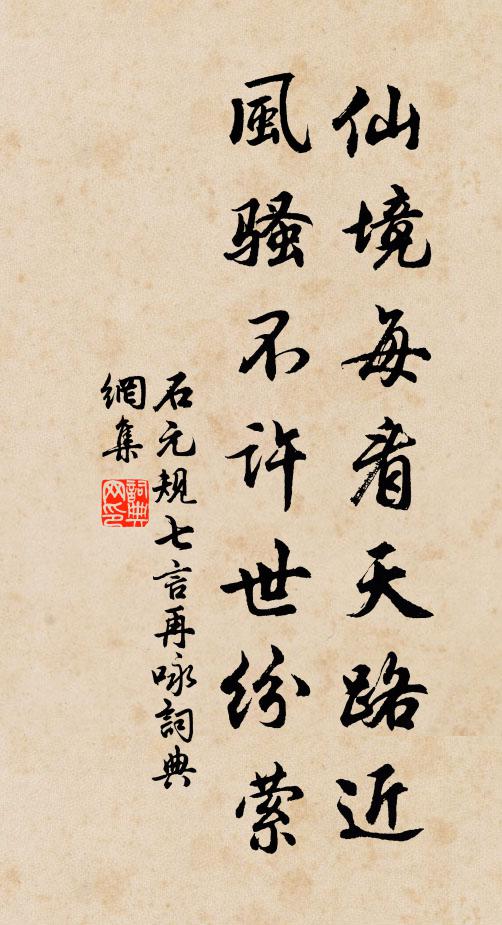 仙境每看天路近
風騷不許世紛縈
石元規七言再咏詞典
網集
詞典網印